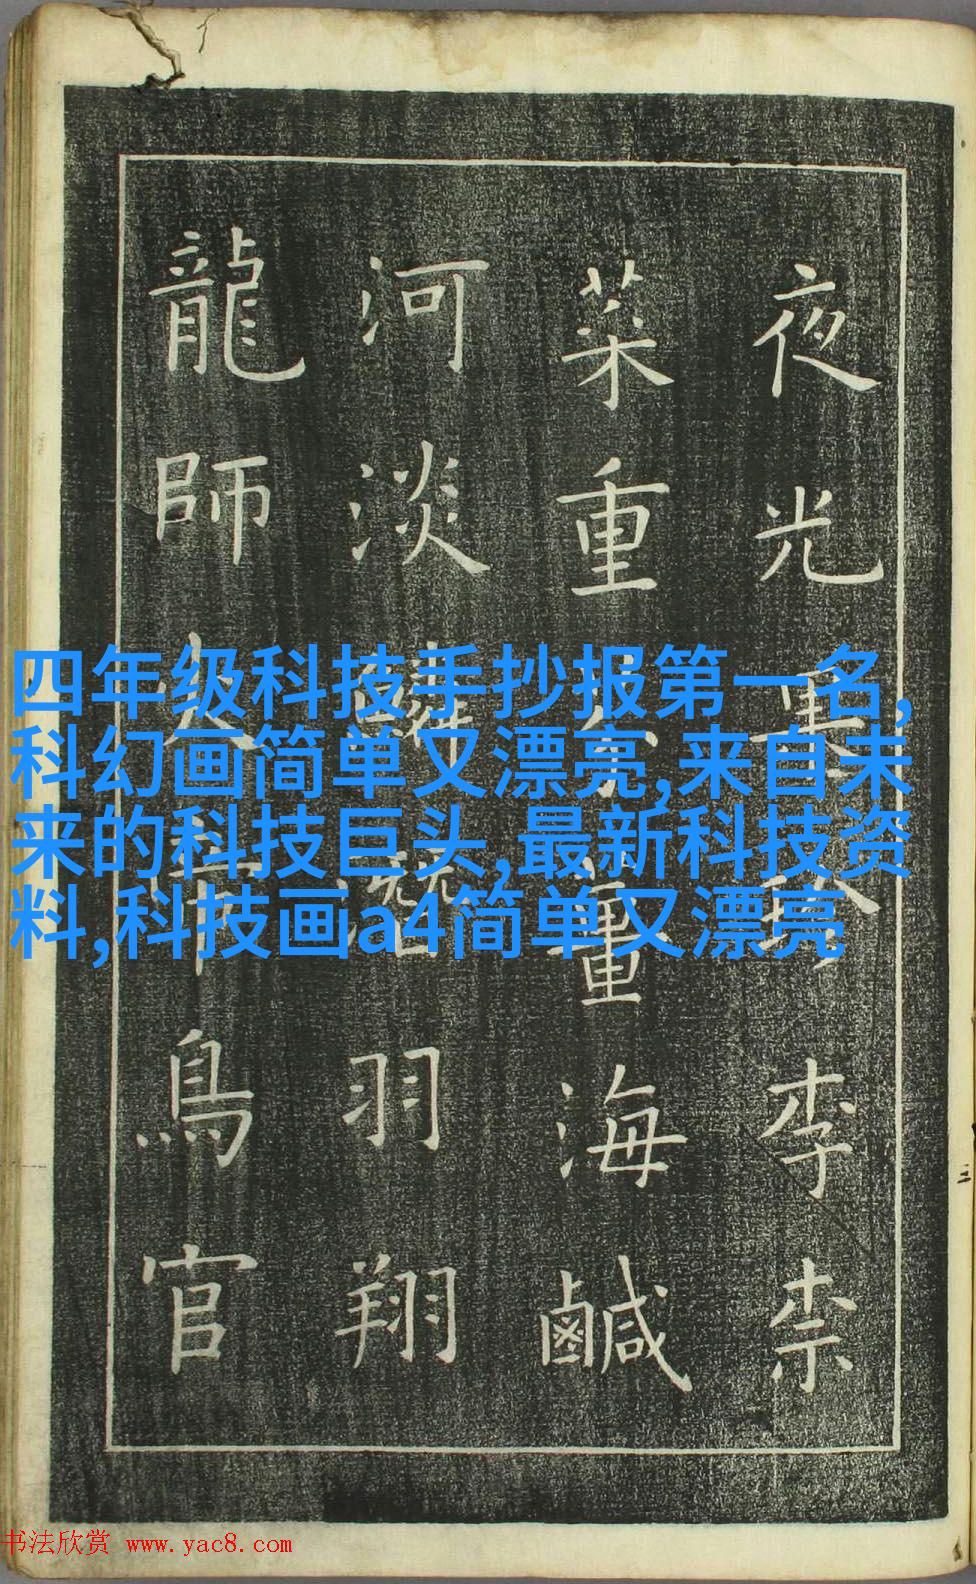 夜光果珍李柰
菜重芥薑海鹹
河淡鱗潛羽翔
龍師火帝鳥官
四年级科技手抄报第一名,
科幻画简单又漂亮,来自未
来的科技巨头,最新科技资
料,科技画a4简单又漂亮
书法欣赏 www.yac8.com